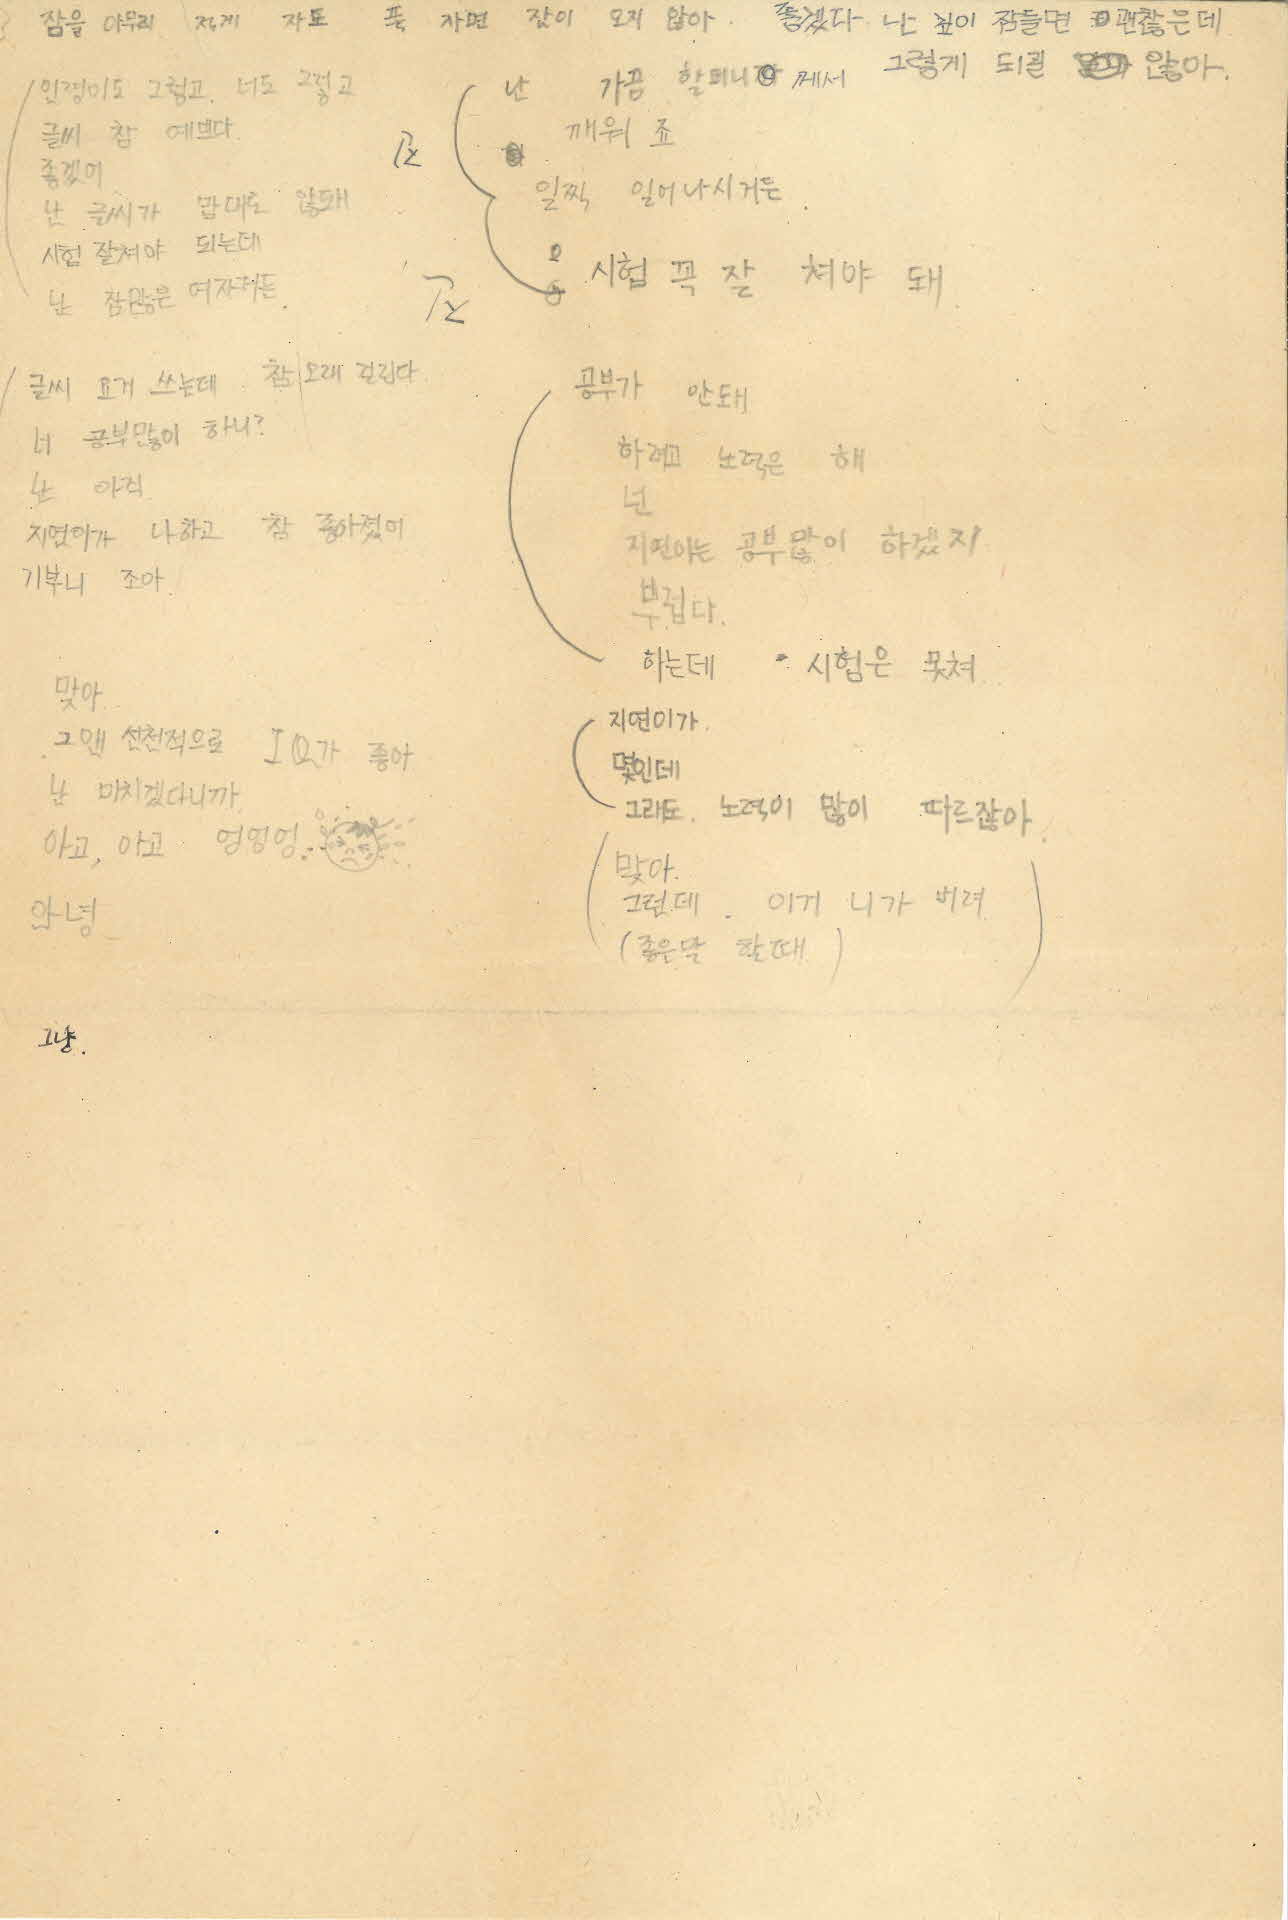 잠을 아무리 적게 자도 푹 자면 잠이 오지 않아. 좋겠다 난 깊이 잠들면 괜찮은데
그렇게 되질 않아.
인경이도 그렇고, 너도 그렇고
글씨 참 예쁘다.
좋겠어
난 글씨가 맘대로 않돼
시험 잘쳐야 되는데
난 참많은 여자거든.
난 가끔 할머니께서
깨워 죠
일찍 일어나시거든.
시험 꼭 잘 쳐야 돼
글씨 요거 쓰는데 참 오래 걸린다
너 공부많이 하니?
난 아직
지연이가 나하고 참 좋아졌어
기부니 조아.
공부가 안돼
하려고 노력은 해
넌
지연이는 공부많이 하겠지
부럽다.
하는데 시험은 못쳐
맞아
그앤 선천적으로 IQ가 좋아
난 미치겠다니까
아고, 아고 엉엉엉.
안녕
지연이가.
몇인데
그래도. 노력이 많이 따르잖아.
맞아.
그런데. 이거 니가 버려
(좋은말 할때)
그냥.